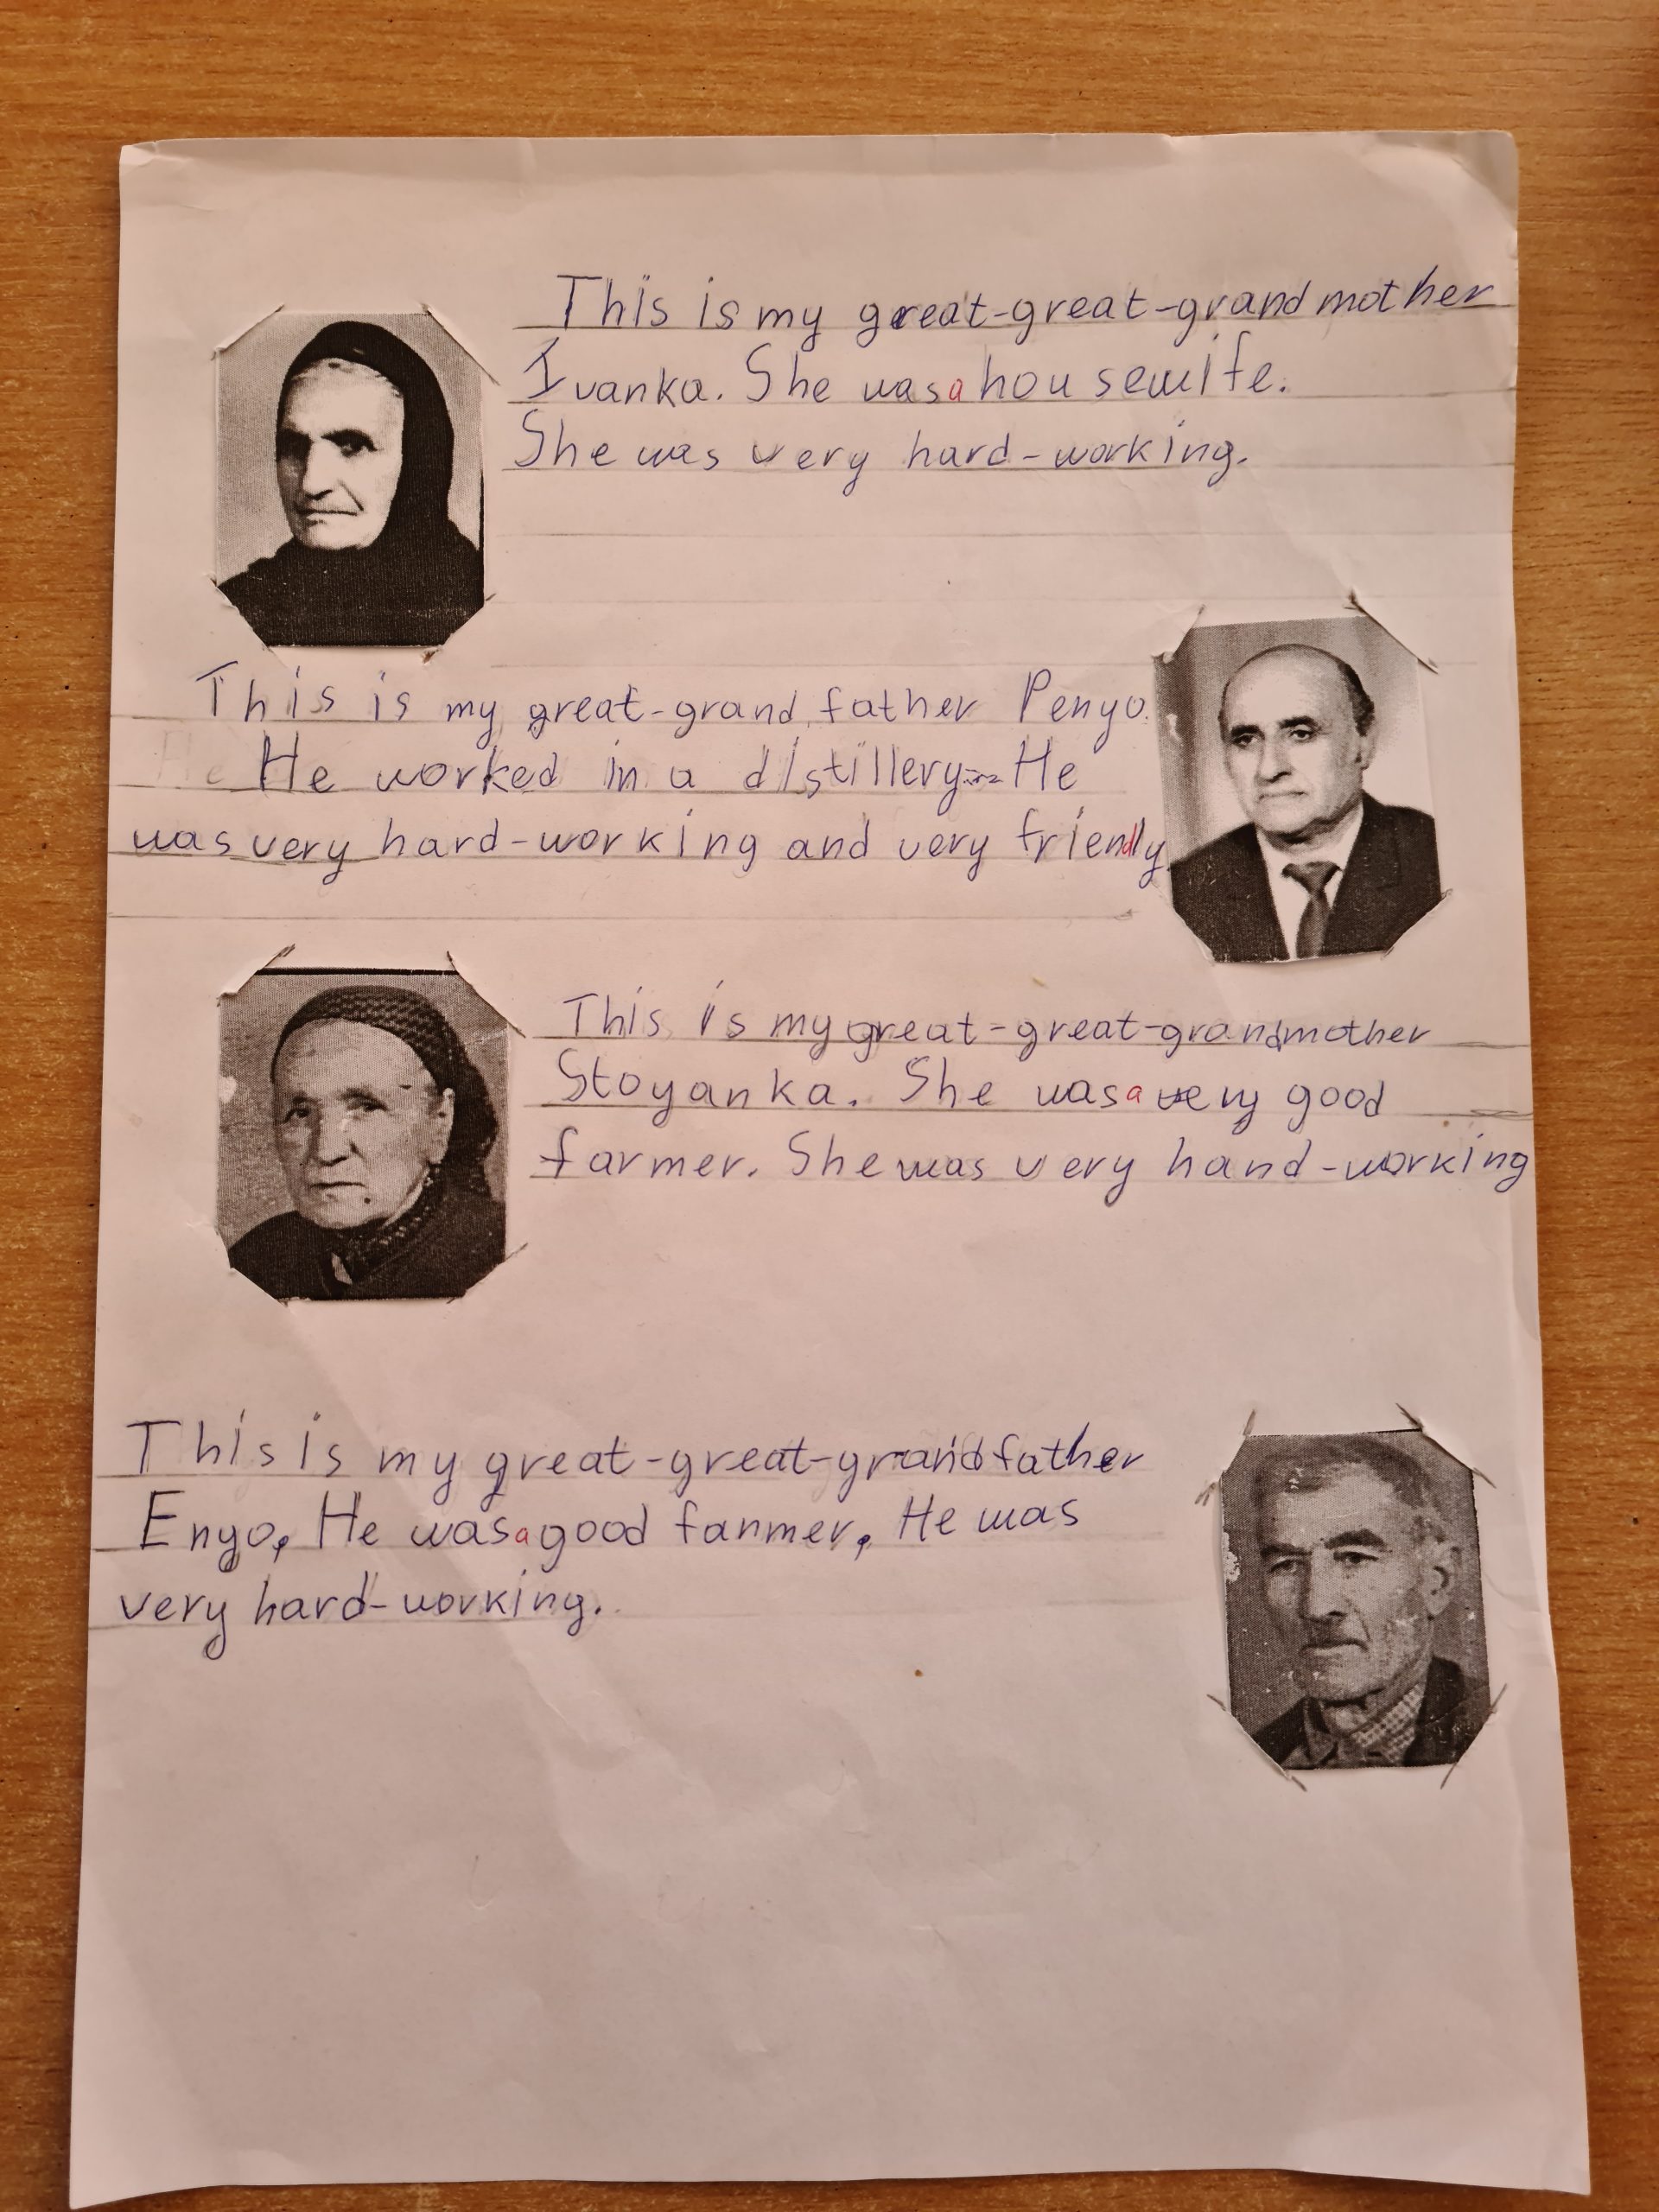 This is my great-great-grandmother
Ivanka. She was a housewife.
She was very hard-working.
This is my great-grandfather Penyo.
He He worked in a distillery. He
was very hard-working and very friendly.
This is my great-great-grandmother
Stoyanka. She was a very good
farmer. She was very hand-working
This is my great-great-grandfather
Enyo, He was a good fanmer, He was
very hard-working.